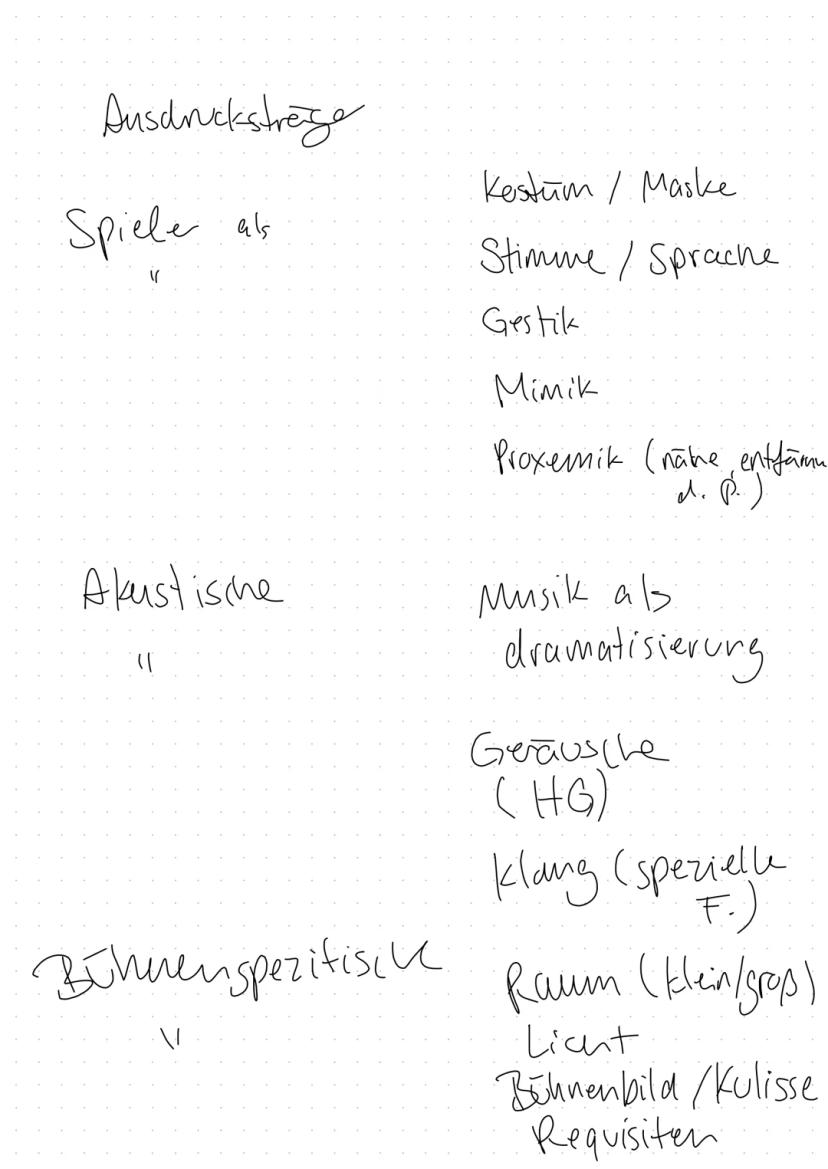 Ausdrucksträger
Kostüm / Maske
Spieler als
"
Stimme / Sprache
Gestik
Mimik
Proxemik (nähe, entfärnu
d. P.)
Akustische
"
Musik als
dramatisierung
Geräusche
(HG)
Klang (spezielle
F.)
Bühnenspezifische
"
Raum (klein/groß)
Licht
Bühnenbild / Kulisse
Requisiten